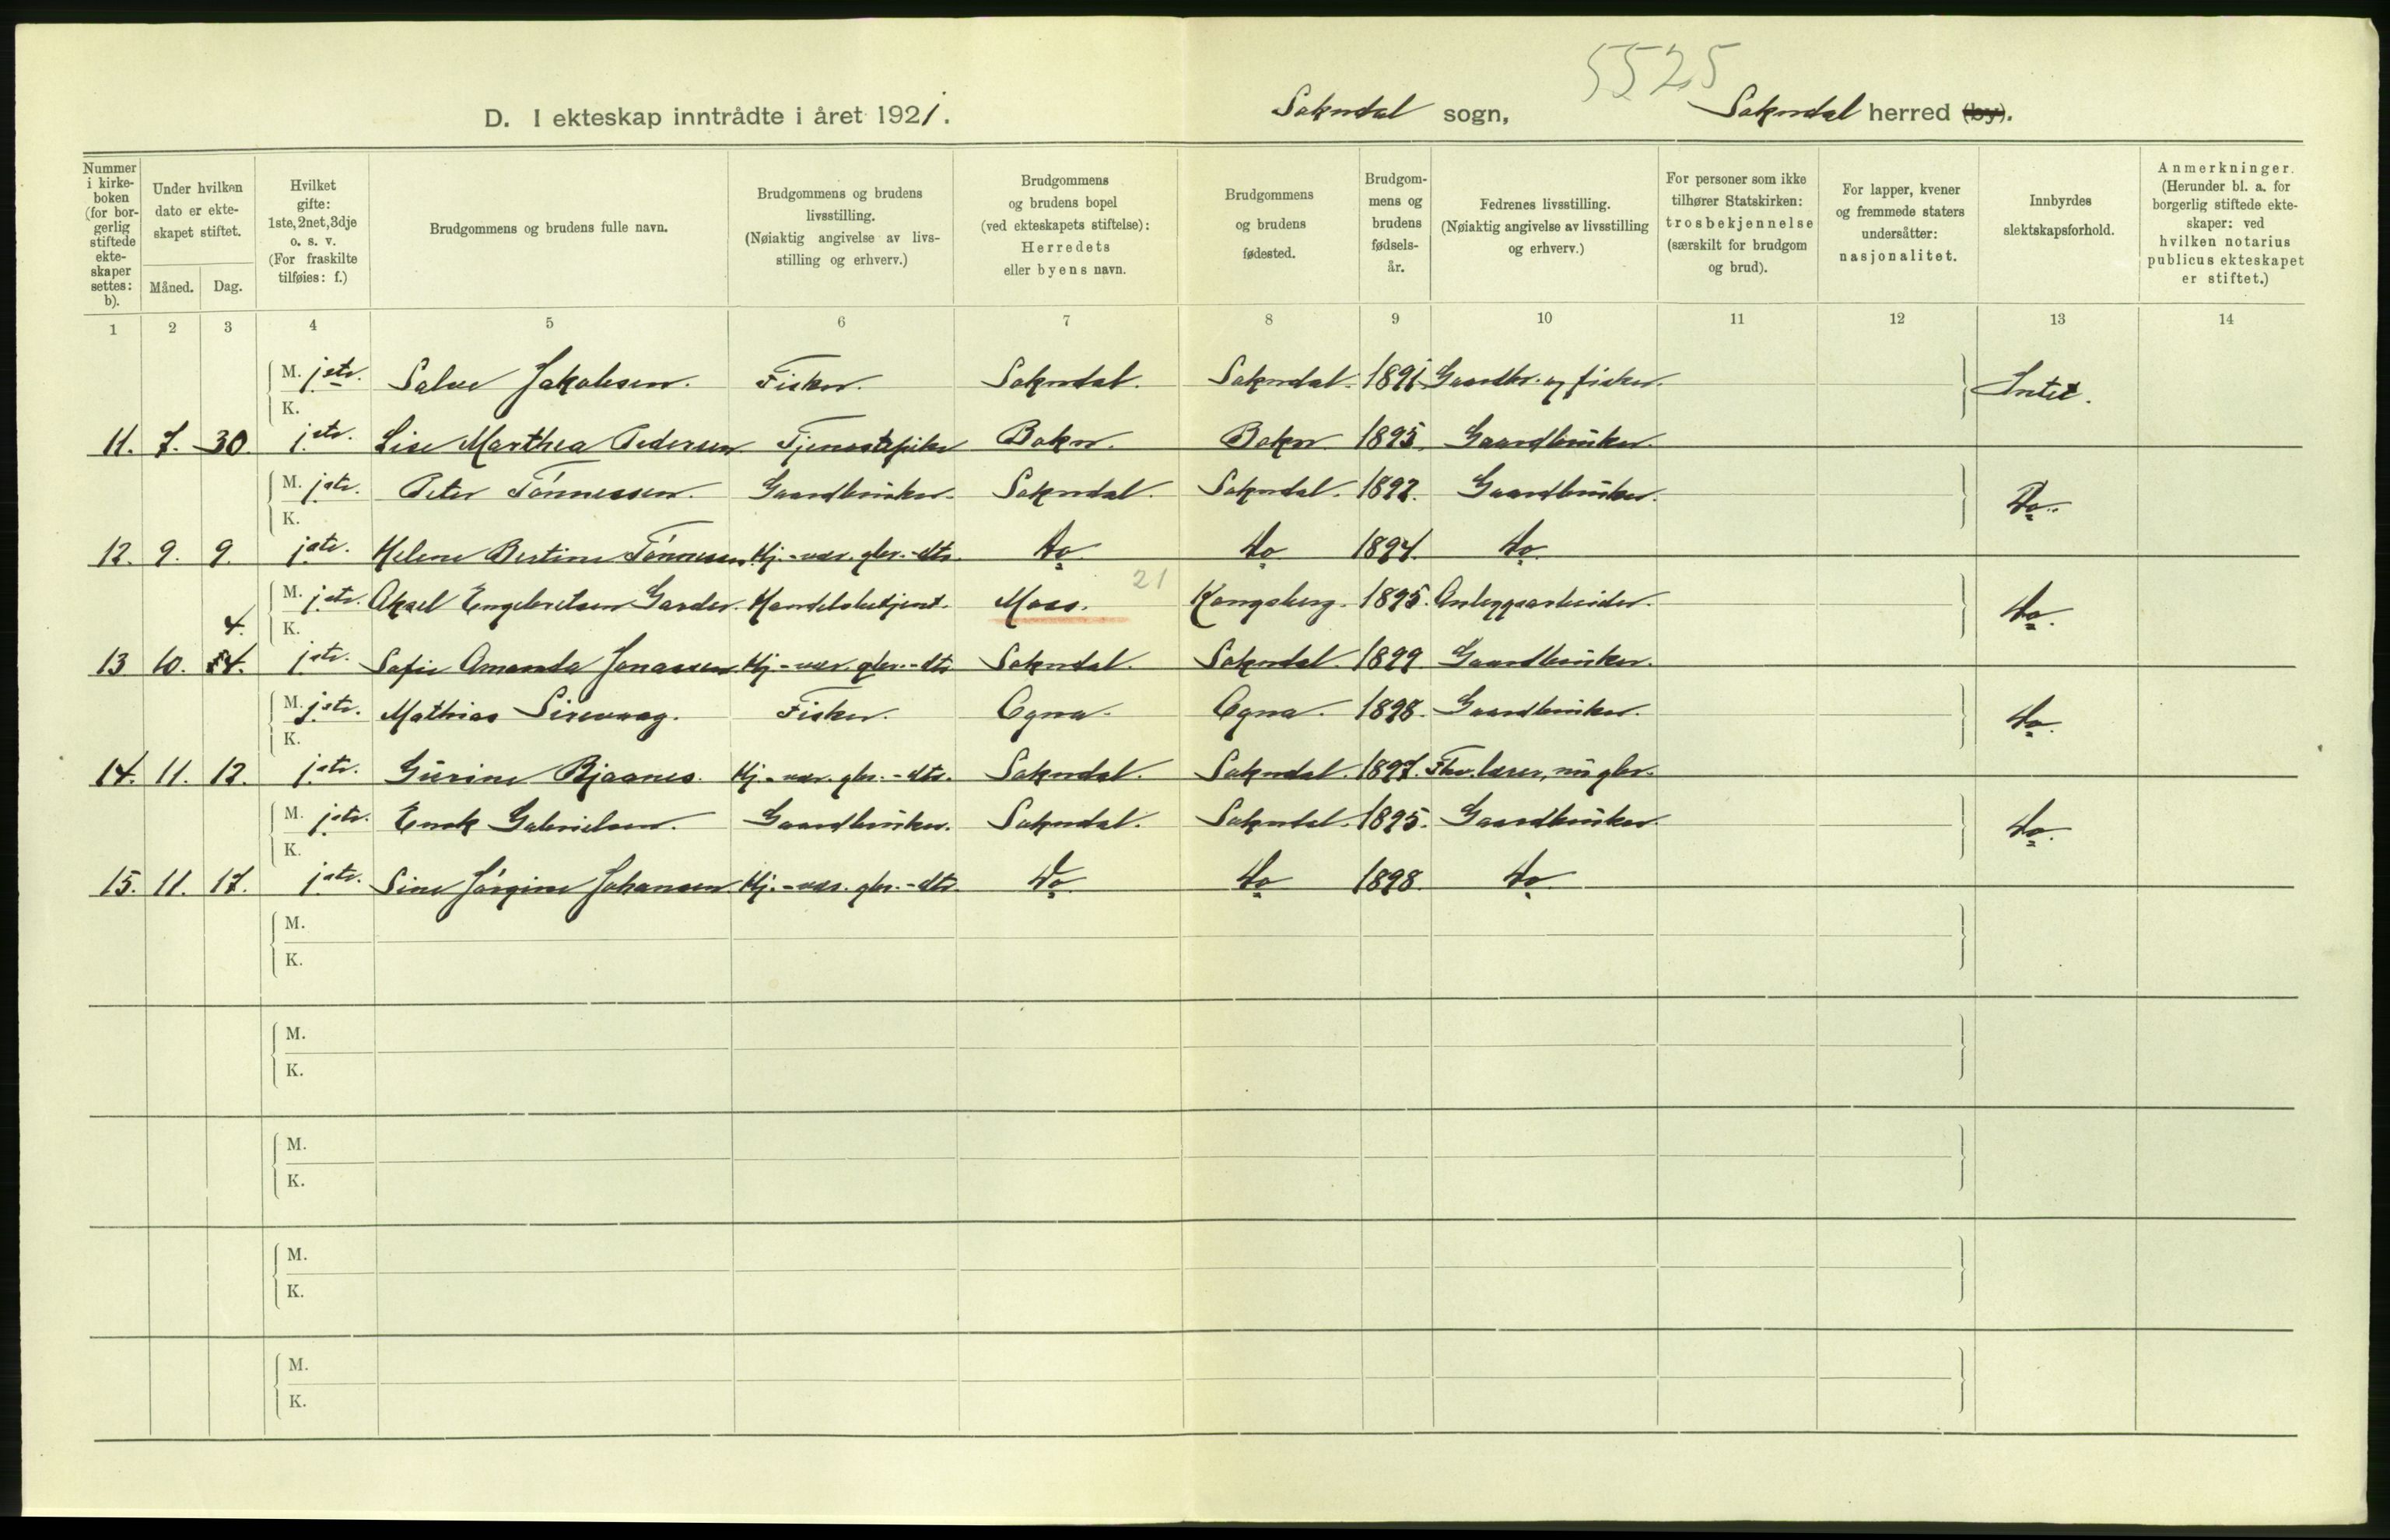 5525
D. I ekteskap inntrådte i året 1921. Sokndal sogn, Sokndal herred (by).
Nummer i kirkeboken (for borgerlig stiftede ekteskaper settes: b).
Under hvilken dato er ekteskapet stiftet.
Måned. Dag.
Hvilket gifte: 1ste, 2net, 3dje o. s. v. (For fraskilte tilføies: f.)
Brudgommens og brudens fulle navn.
Brudgommens og brudens livsstilling. (Nøiaktig angivelse av livsstilling og erhverv.)
Brudgommens og brudens bopel (ved ekteskapets stiftelse): Herredets eller byens navn.
Brudgommens og brudens fødested.
Brudgommens og brudens fødselsår.
Fedrenes livsstilling. (Nøiaktig angivelse av livsstilling og erhverv.)
For personer som ikke tilhører Statskirken: trosbekjennelse (særskilt for brudgom og brud).
For lapper, kvener og fremmede staters undersåtter: nasjonalitet.
Innbyrdes slektskapsforhold.
Anmerkninger. (Herunder bl. a. for borgerlig stiftede ekteskaper: ved hvilken notarius publicus ekteskapet er stiftet.)
1 2 3 4 5 6 7 8 9 10 11 12 13 14
M. 1ste. Salve Jakobsen. Fisker. Sokndal. Sokndal. 1891 Gaardbr. og fisker. Intet.
K.
11. 7. 30. 1ste. Lise Marthea Pedersen Tjenestepike Bokn. Bokn 1895. Gaardbruker.
M. 1ste. Peter Tönnessen. Gaardbruker. Sokndal. Sokndal. 1892. Gaardbruker. Do.
K.
12. 9. 9. 1ste. Helene Bertine Tönnesen Hj.-vær. gbr.-dtr. Do Do 1894. Do.
M. 1ste. Aksel Engebretsen Garder. Handelsbetjent. Moss. 21 Kongsberg. 1895. Anleggsarbeider. Do.
4. K.
13 10. 1ste. Sofie Amanda Jonassen Hj.-vær. gbr.-dtr Sokndal. Sokndal. 1899 Gaardbruker.
M. 1ste. Mathias Sirevaag. Fisker. Ogna. Ogna. 1898. Gaardbruker. Do.
K.
14. 11. 12. 1ste. Gurine Bjaanes. Hj.-vær. gbr.-dtr. Sokndal. Sokndal. 1897. Fhv. lærer, nu gbr.
M. 1ste. Enok Gabrielsen. Gaardbruker. Sokndal. Sokndal. 1895. Gaardbruker Do.
K.
15. 11. 17. 1ste. Sine Jörgine Johansen Hj.-vær. gbr.-dtr. Do. Do 1898. Do.
M.
K.
M.
K.
M.
K.
M.
K.
M.
K.